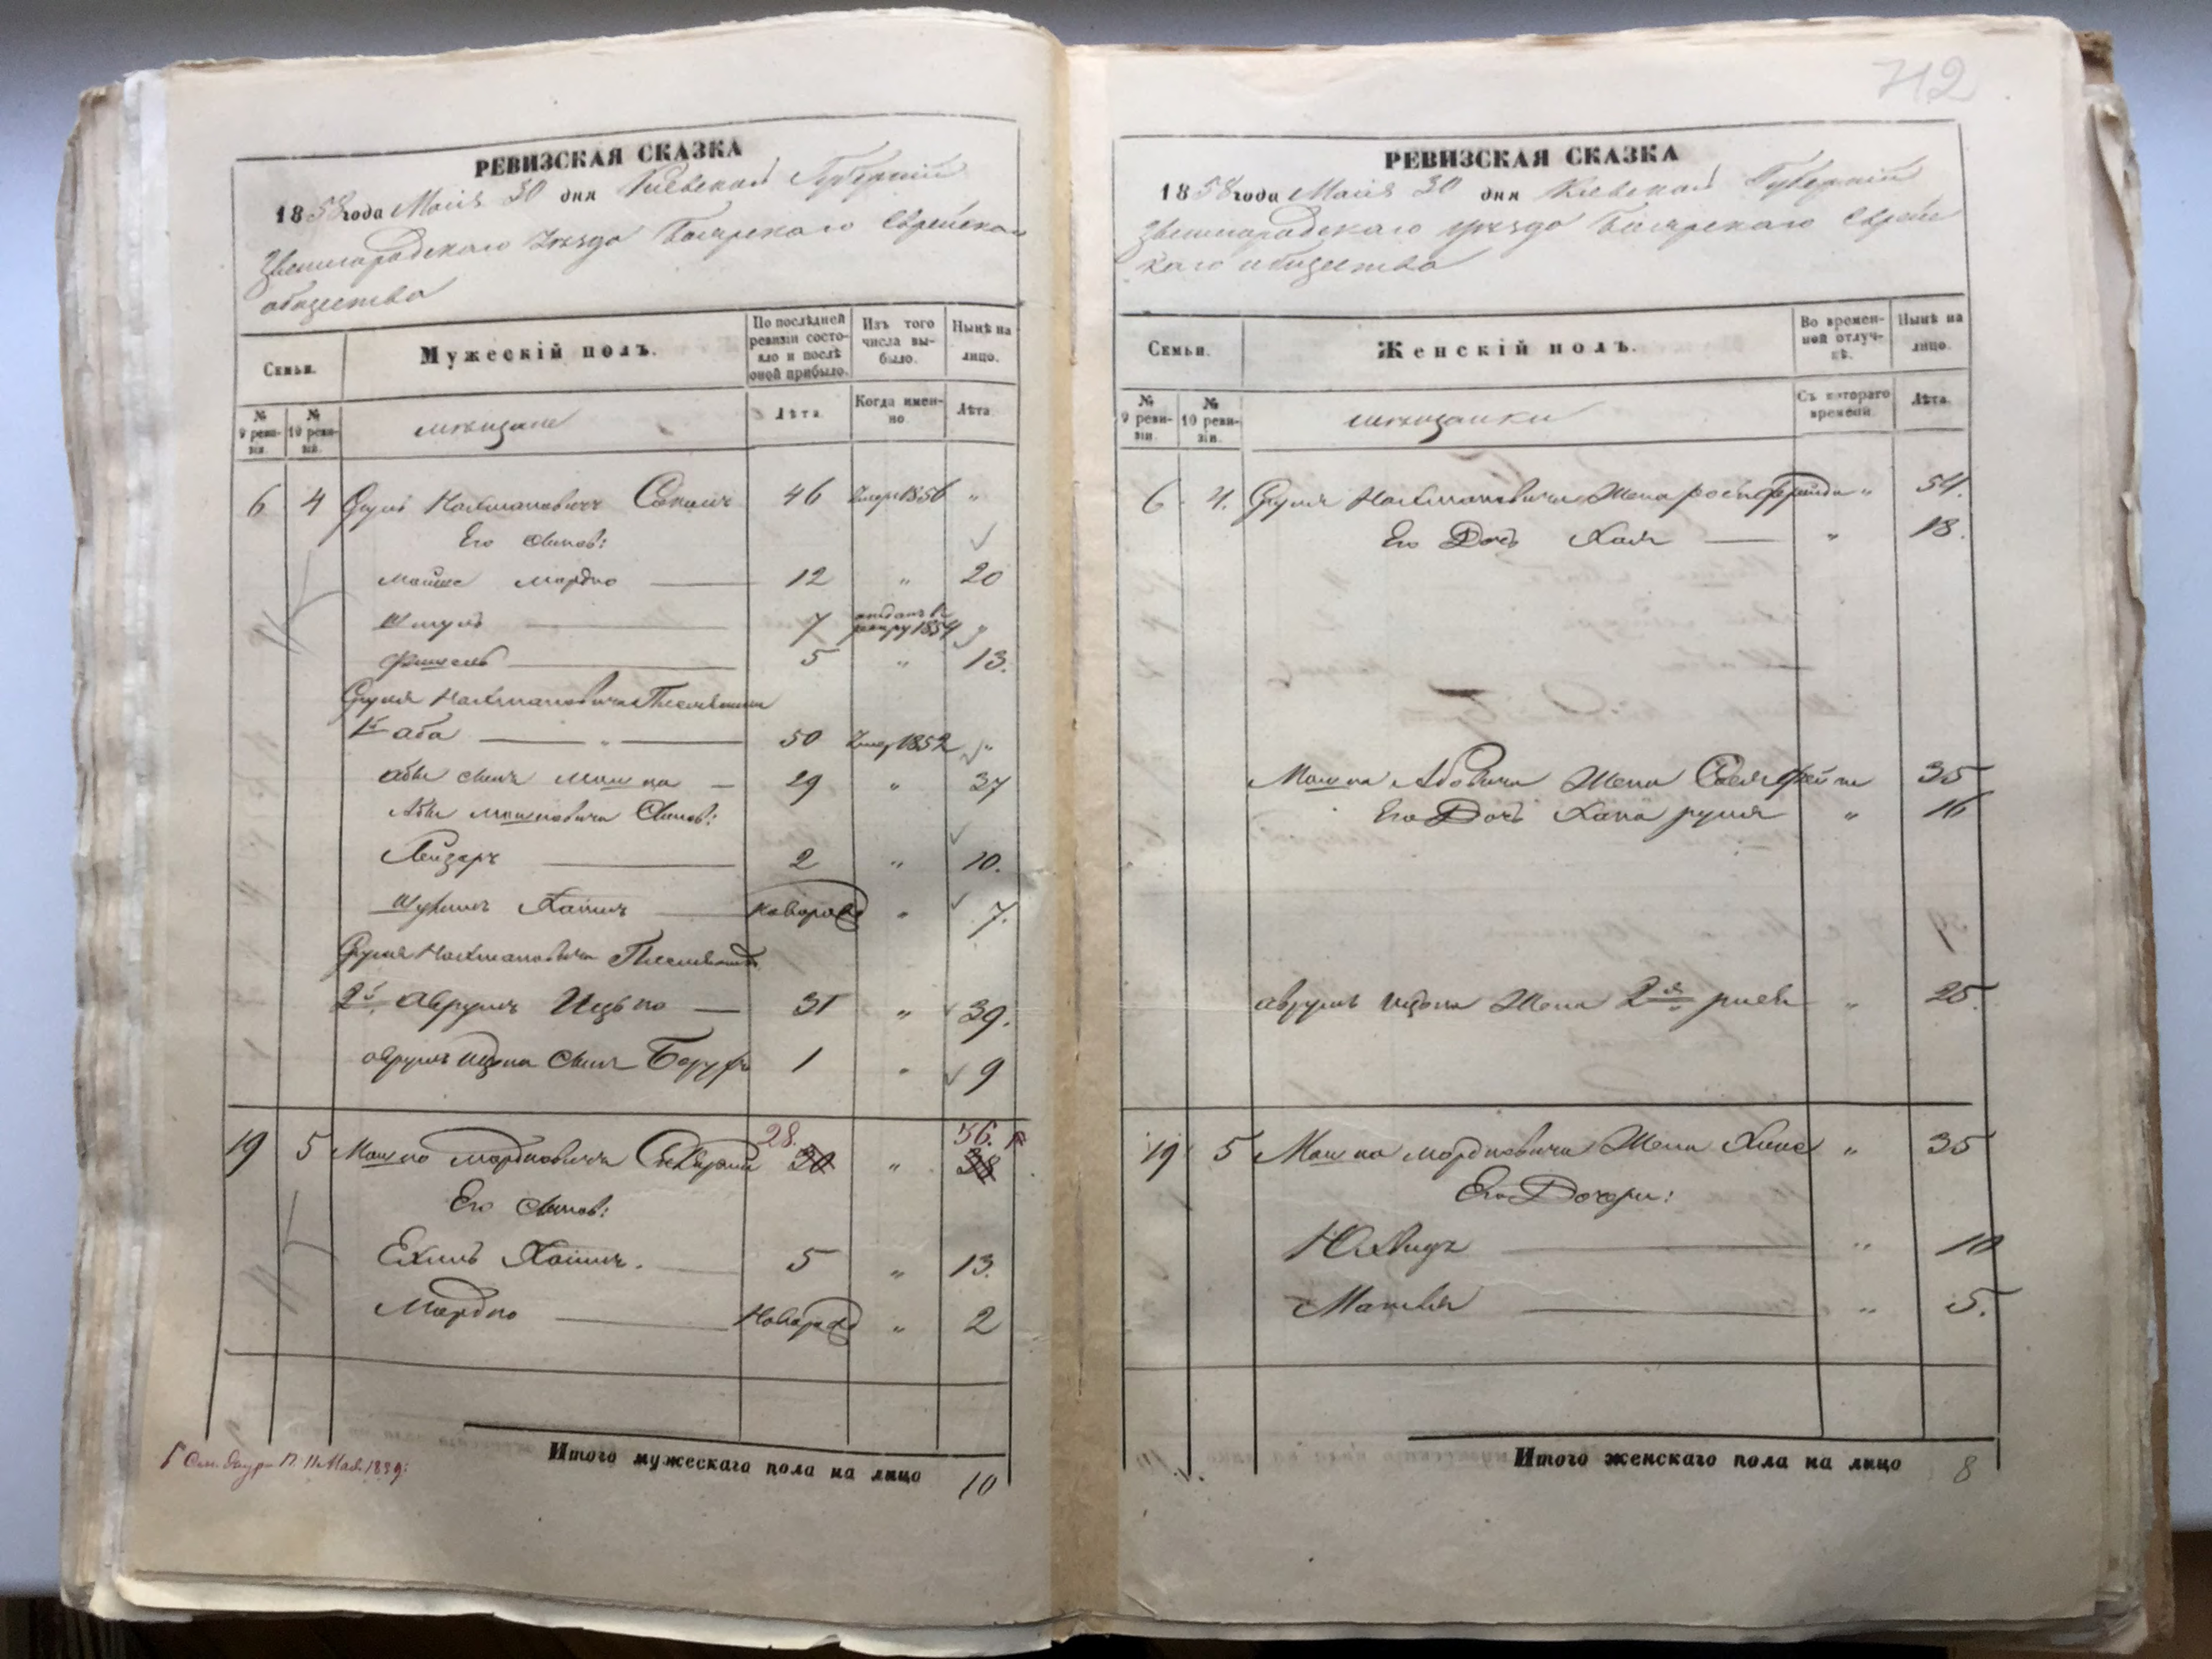 РЕВИЗСКАЯ СКАЗКА
1858 года Маія 30 дня Кіевской Губерніи
Звенигородскаго Уѣзда Боярскаго Еврейскаго
общества
Семьи.
Мужескій полъ.
По послѣдней ревизіи состояло и послѣ оной прибыло.
Изъ того числа выбыло.
Нынѣ на лицо.
№ 9 ревизіи.
№ 10 ревизіи.
мѣщане
Лѣта.
Когда именно.
Лѣта.
6 4 Сруль Нахмановичъ 46 Умеръ 1856 "
Его сыновъ:
Мошко Мордко 12 " 20
Шмуль 7 отданъ в рекру 1854 "
Фишель 5 " 13.
Сруля Нахмановича Племянники
1й Аба " 50 Умер 1852 "
Абы сынъ Мошко 29 " 37
Абы Мошковича Сыновъ:
Лейзоръ 2 " 10.
Хаимъ новорожд " 7.
Сруля Нахмановича Племянникъ
2й Аврумъ Ицько 31 " 39.
Аврумъ Ицька Сынъ Борухъ 1 " 9
19 5 Мошко Мордковичъ 28. 30 " 36. 38
Его сыновъ:
Ехиль Хаимъ. 5 " 13.
Мордко Новорожд " 2
Итого мужескаго пола на лицо 10
712
РЕВИЗСКАЯ СКАЗКА
1858 года Маія 30 дня Кіевской Губерніи
Звенигородскаго уѣзда Боярскаго Еврейс
каго общества
Семьи.
Женскій полъ.
Во временной отлучкѣ.
Нынѣ на лицо.
№ 9 ревизіи.
№ 10 ревизіи.
мѣщанки
Съ котораго времени.
Лѣта.
6 4. Сруля Нахмановича Жена " 54.
Его Дочь Хая " 18.
Мошка Абовича Жена 35
Его Дочь Хана рухля " 16
Аврумъ Ицька Жена 2я ривка " 25.
19 5 Мошка Мордковича Жена " 35
Его Дочери:
Юхвидъ " 10
Малка " 5.
Итого женскаго пола на лицо 8